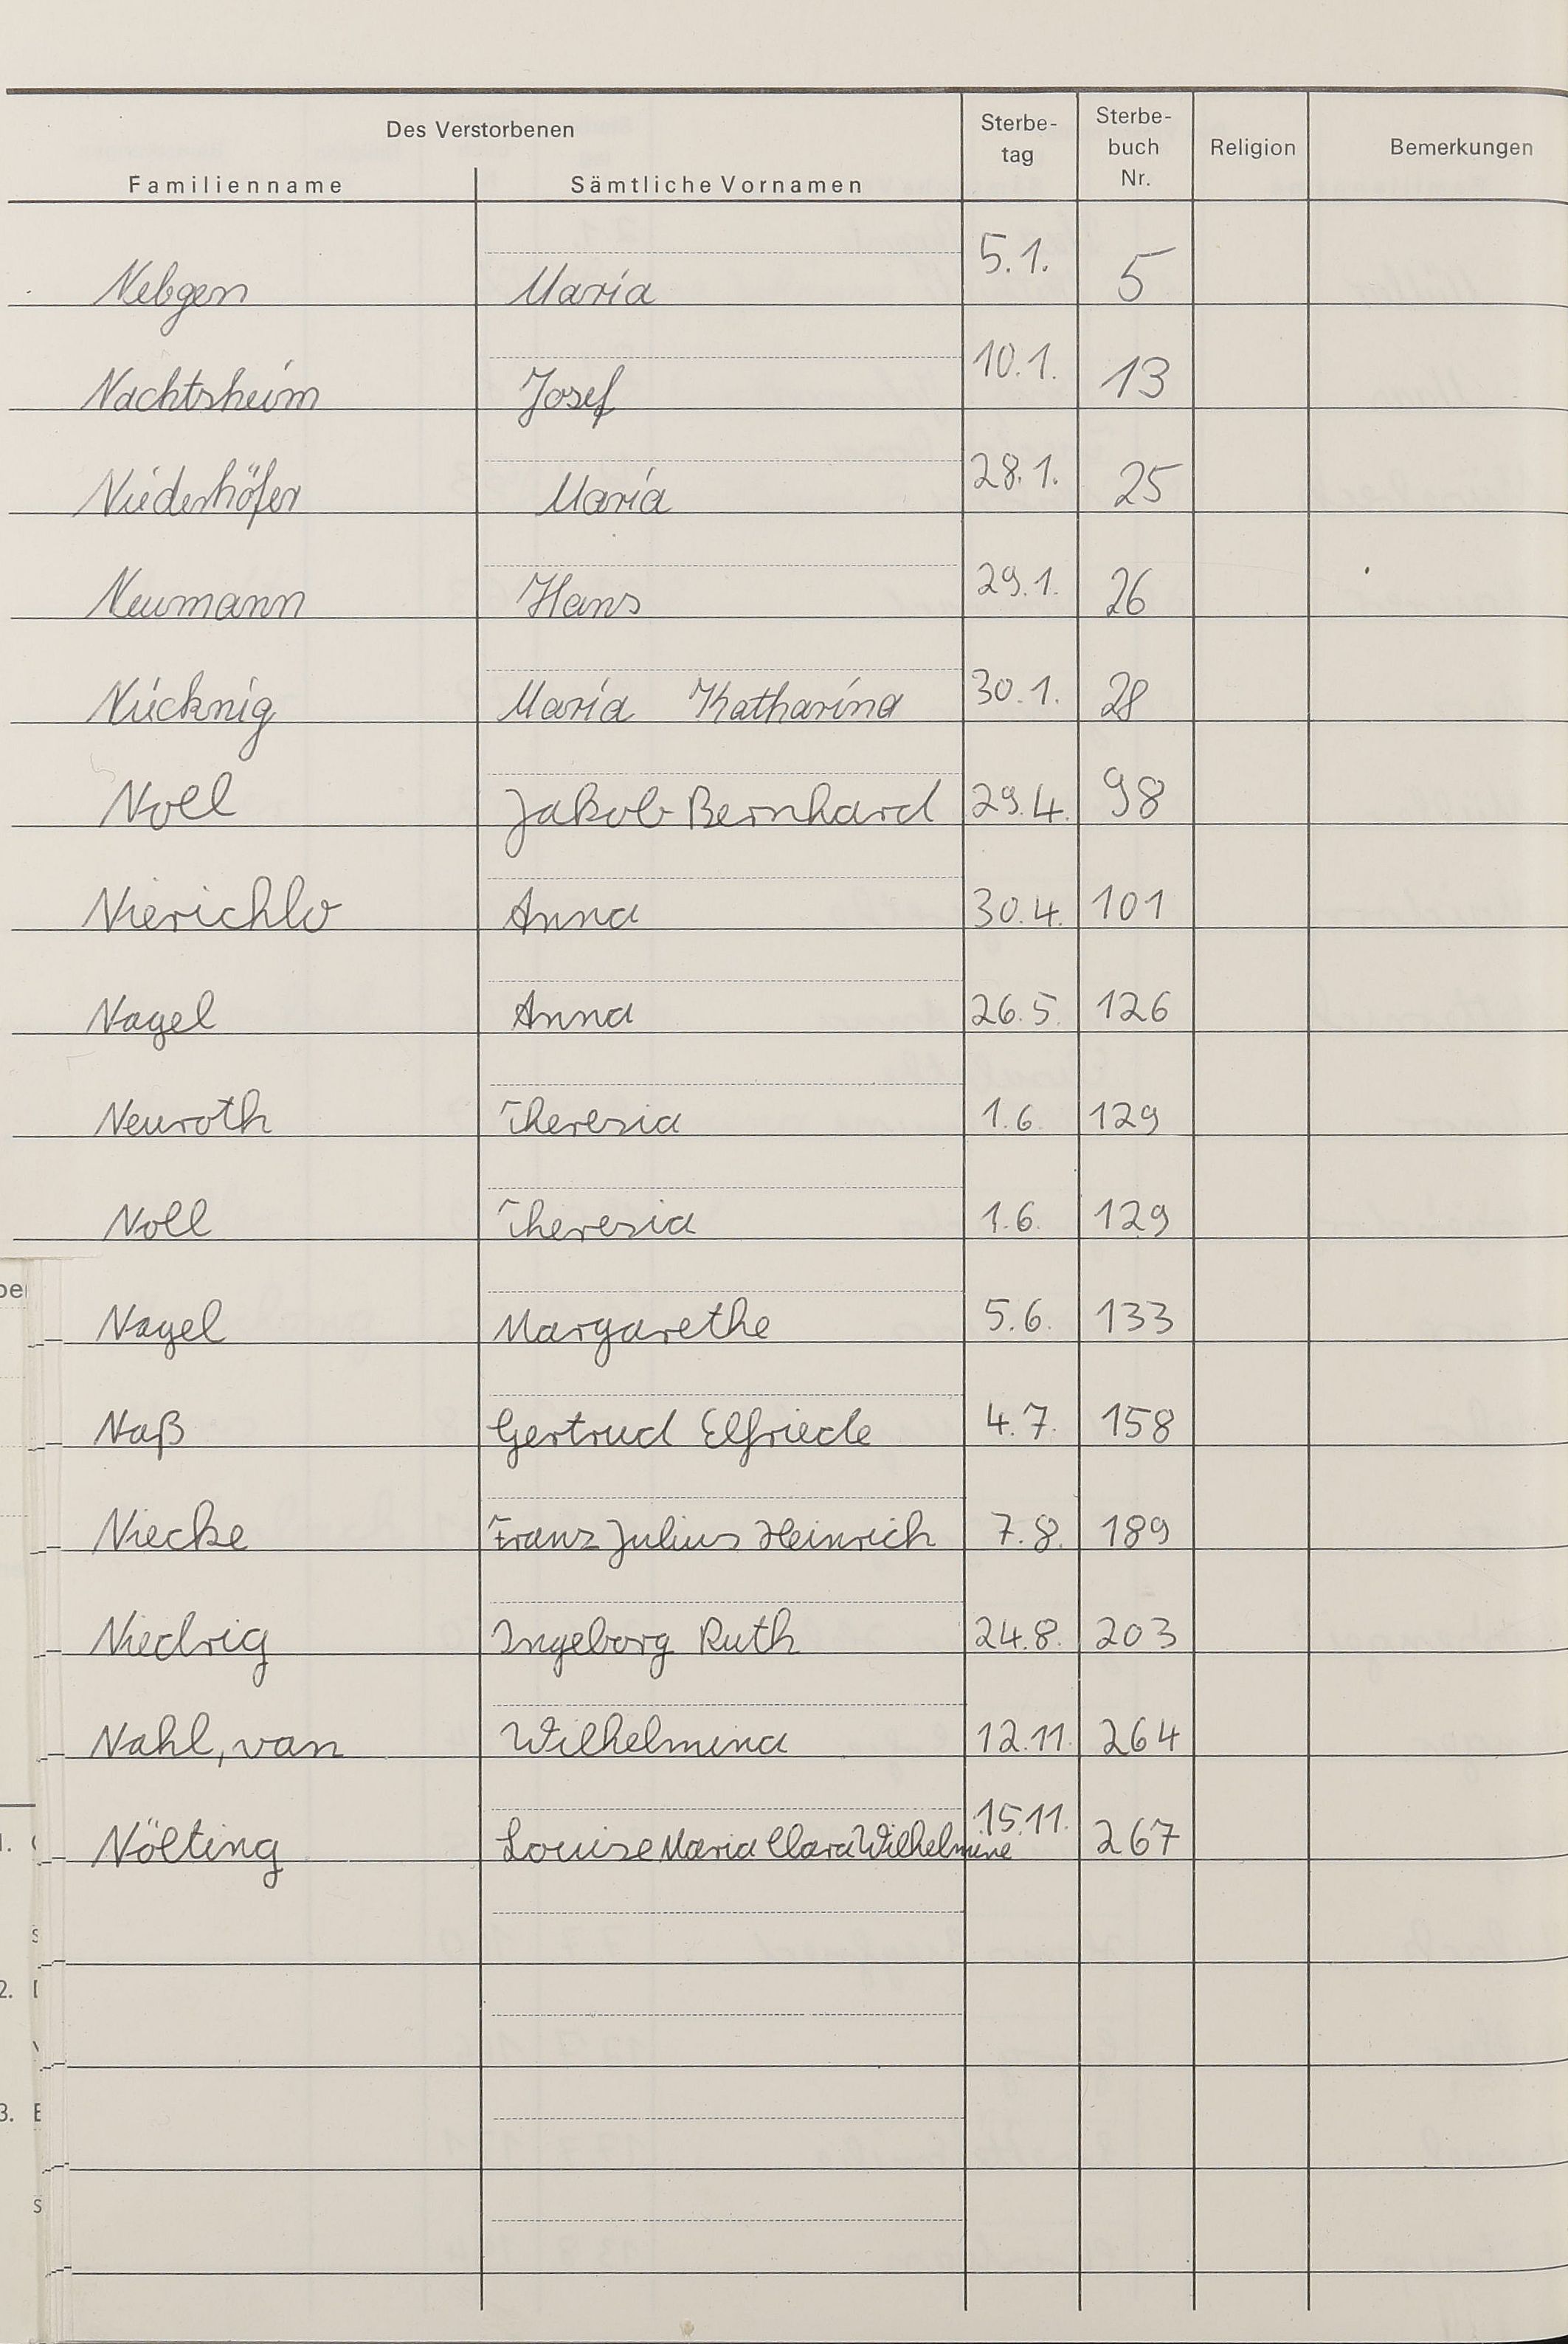 Des Verstorbenen
Familienname Sämtliche Vornamen Sterbe-tag Sterbe-buch Nr. Religion Bemerkungen
Nebgen Maria 5.1. 5
Nachtsheim Josef 10.1. 13
Niederhöfer Maria 28.1. 25
Neumann Hans 29.1. 26
Nücknig Maria Katharina 30.1. 28
Noll Jakob Bernhard 29.4. 98
Nierichlo Anna 30.4. 101
Nagel Anna 26.5. 126
Neuroth Theresia 1.6. 129
Noll Theresia 1.6. 129
Nagel Margarethe 5.6. 133
Naß Gertrud Elfriede 4.7. 158
Niecke Franz Julius Heinrich 7.8. 189
Niedrig Ingeborg Ruth 24.8. 203
Nahl, van Wilhelmina 12.11. 264
Nölting Louise Maria Clara Wilhelmine 15.11. 267